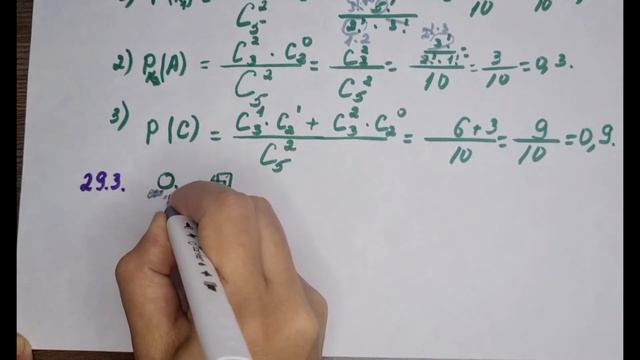 C₅² 2! · 3! 10 10
2) P(A) = C₃² · C₂⁰ / C₅² = C₃² / C₅² = 3! / 2! · 1! / 10 = 3/10 = 0,3.
3) P(C) = C₃¹ · C₂¹ + C₃² · C₂⁰ / C₅² = 6+3 / 10 = 9/10 = 0,9.
29.3.